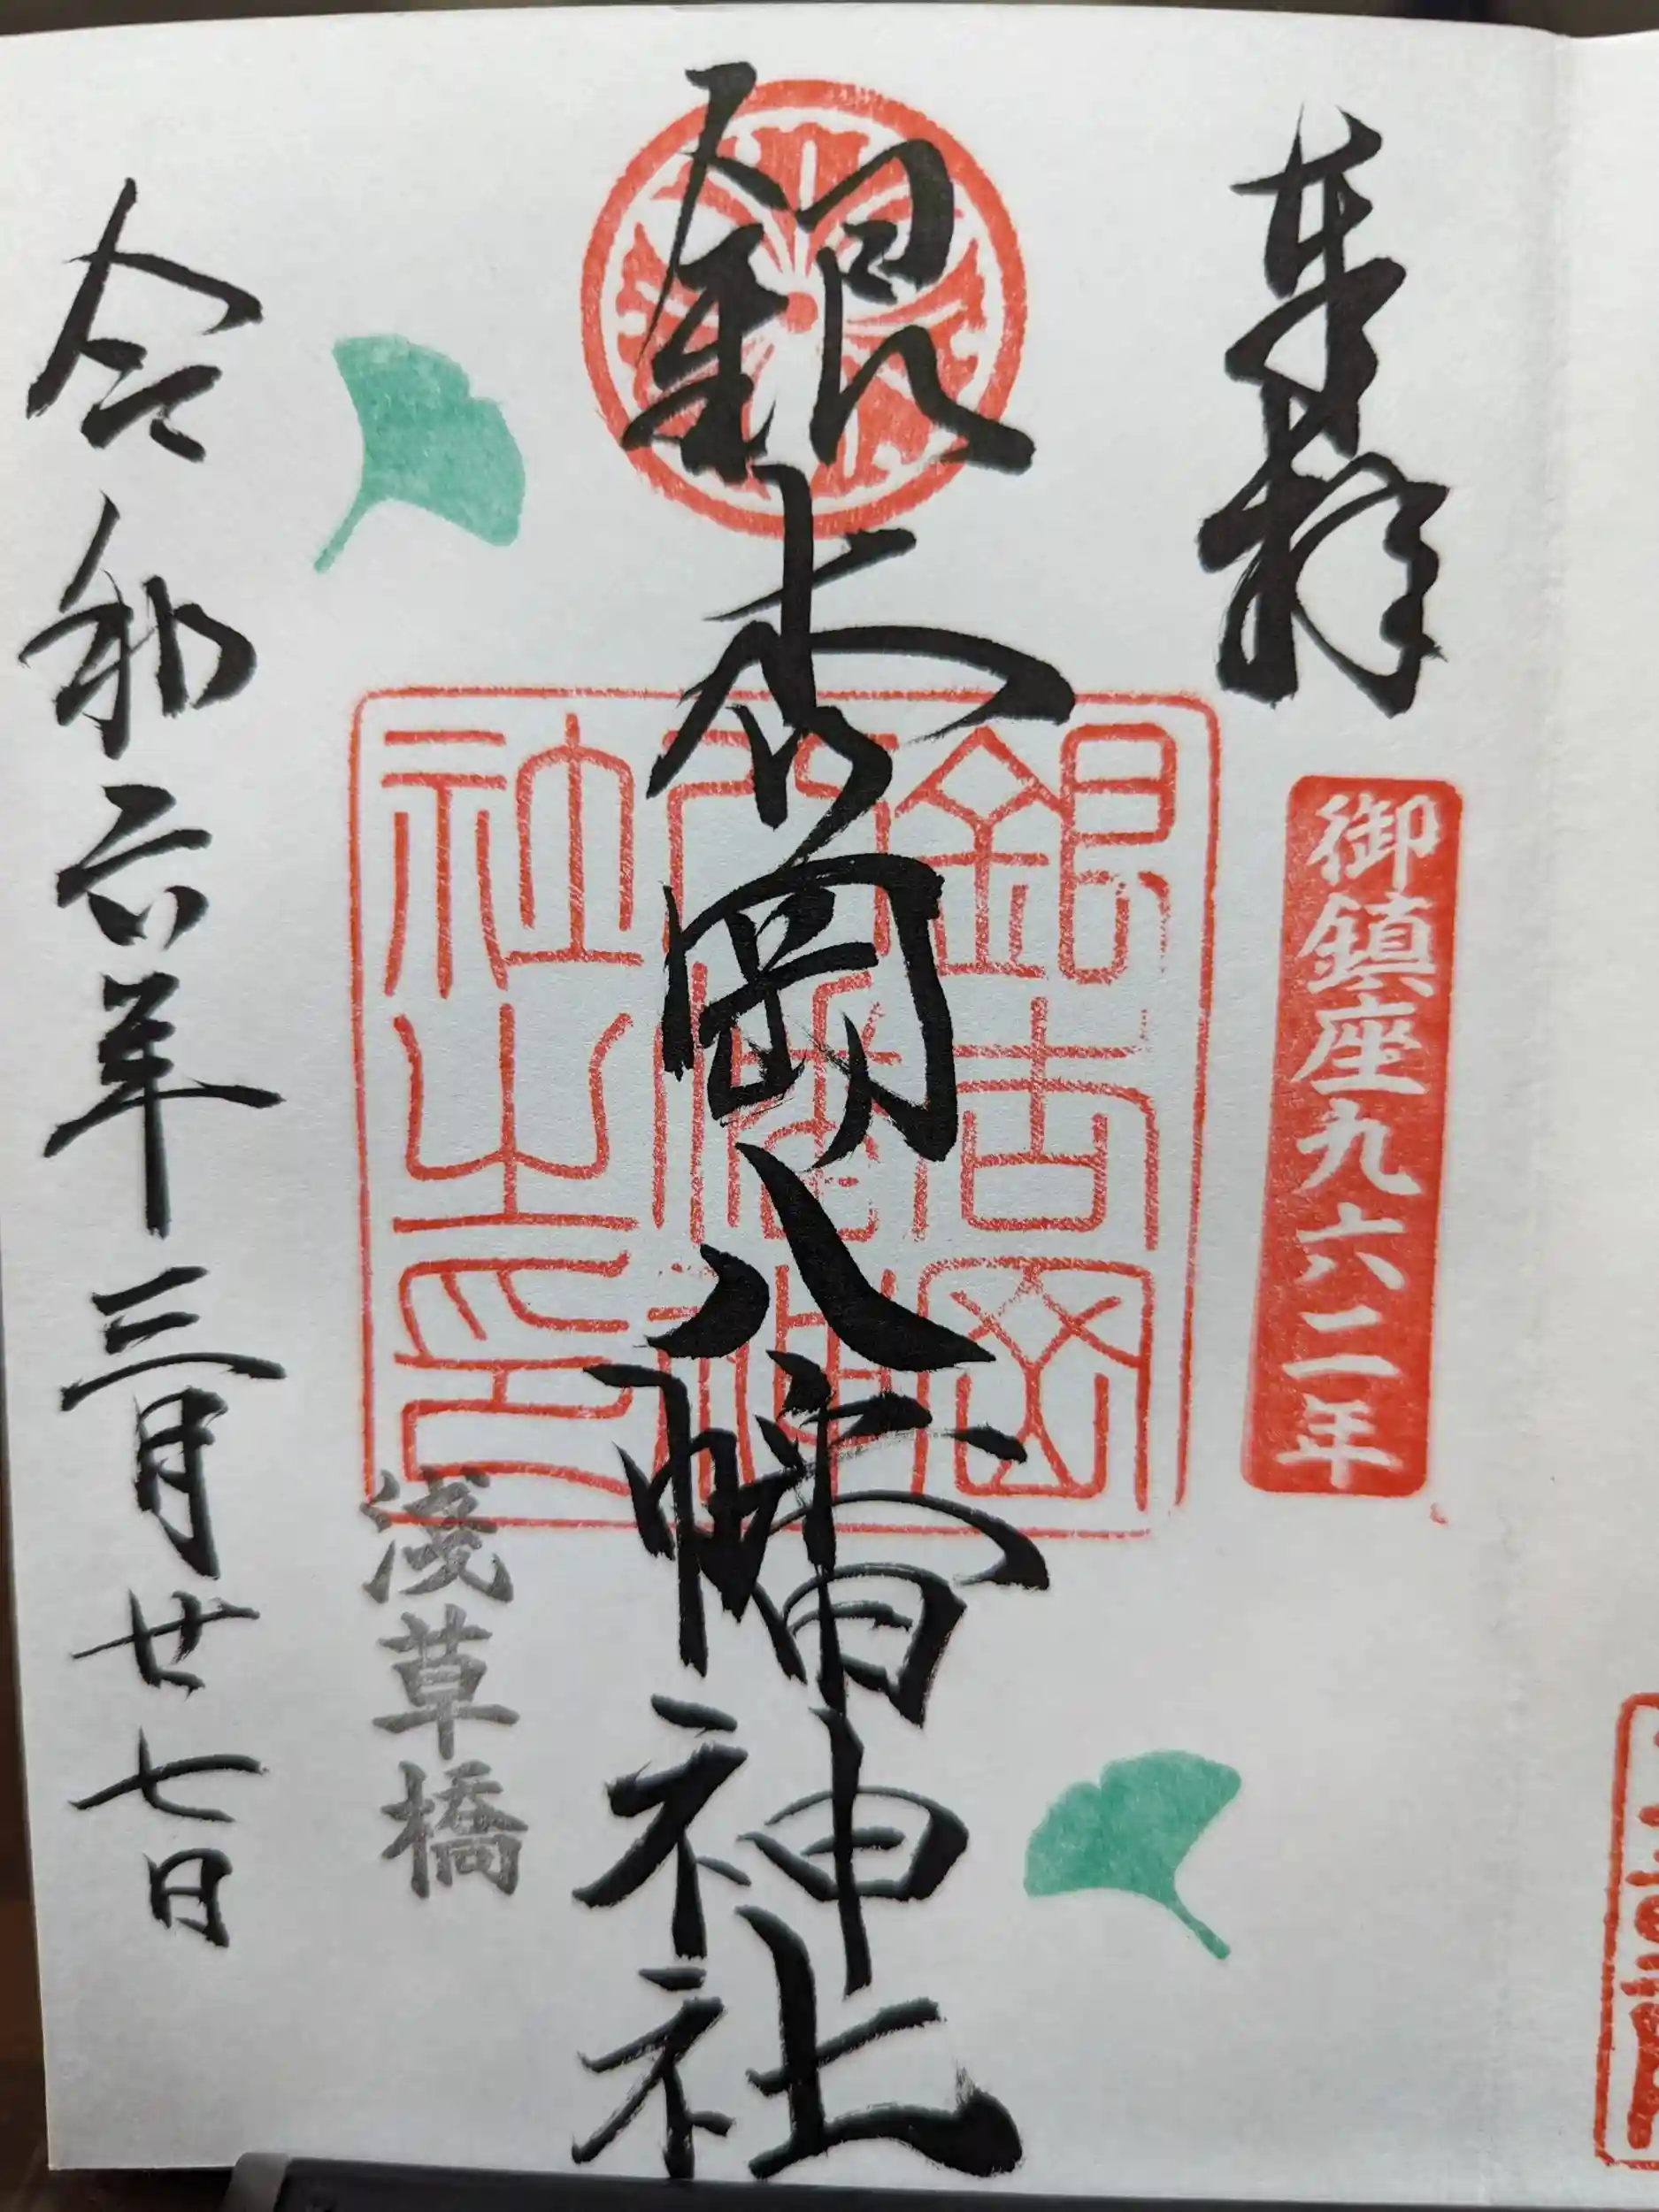 奉拝
御鎮座九六二年
銀杏岡八幡神社
銀杏岡
八幡神
社之印
淺草橋
令和六年三月廿七日